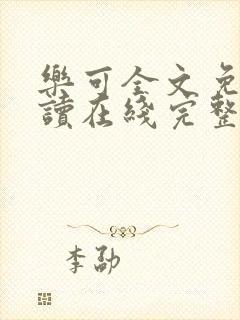 樂可全文免
讀在綫完整
李勐